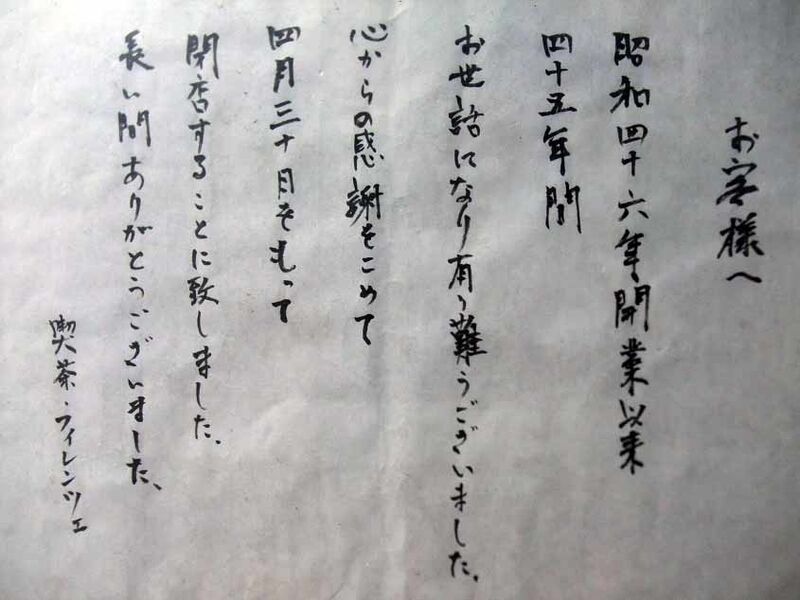 お客様へ
昭和四十六年開業以来
四十五年間
お世話になり有り難うございました。
心からの感謝をこめて
四月三十日をもって
閉店することに致しました。
長い間ありがとうございました、
喫茶・フィレンツェ